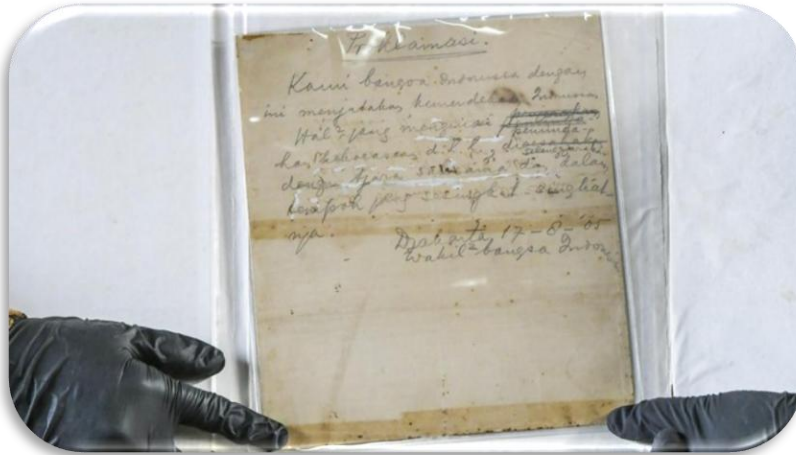 Proklamasi.
Kami bangsa Indonesia dengan
ini menjatakan kemerdekaan Indonesia
Hal² jang mengenai
kekoeasaan d.l.l.,
dengan tjara saksama dan dalam
tempoh jang sesingkat-singkat
nja.
Djakarta, 17-8-'05
Wakil² bangsa Indonesia